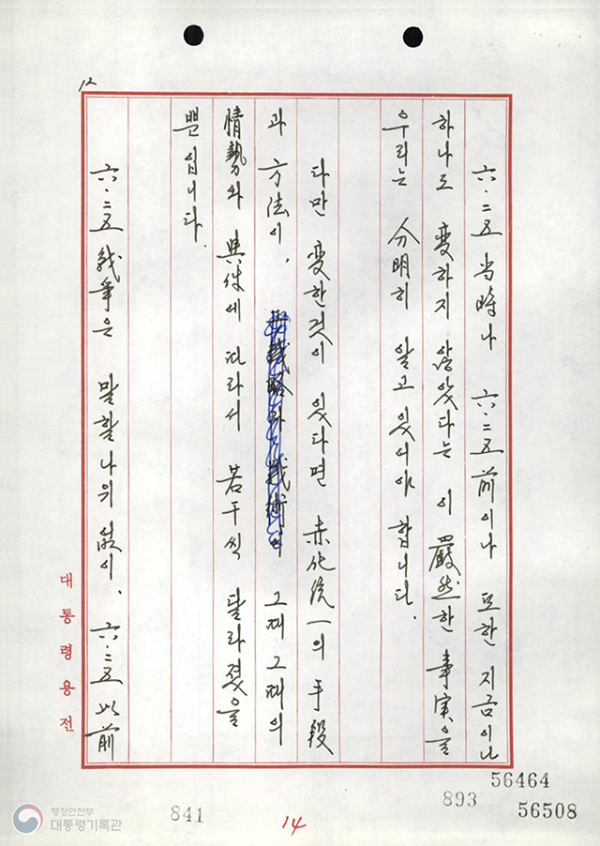 12
六·二五 当時나 六·二五前이나 또한 지금이나
하나도 변하지 않았다는 이 嚴然한 事実을
우리는 分明히 알고 있어야 합니다.
다만 変한것이 있다면 赤化統一의 手段
과 方法이, 그때 그때의
情勢와 與件에 따라서 若干씩 달라졌을
뿐 입니다.
六·二五 戰争은 말할 나위 없이, 六·二五 以前
대통령용전
56464
893
56508
841
14
행정안전부
대통령기록관